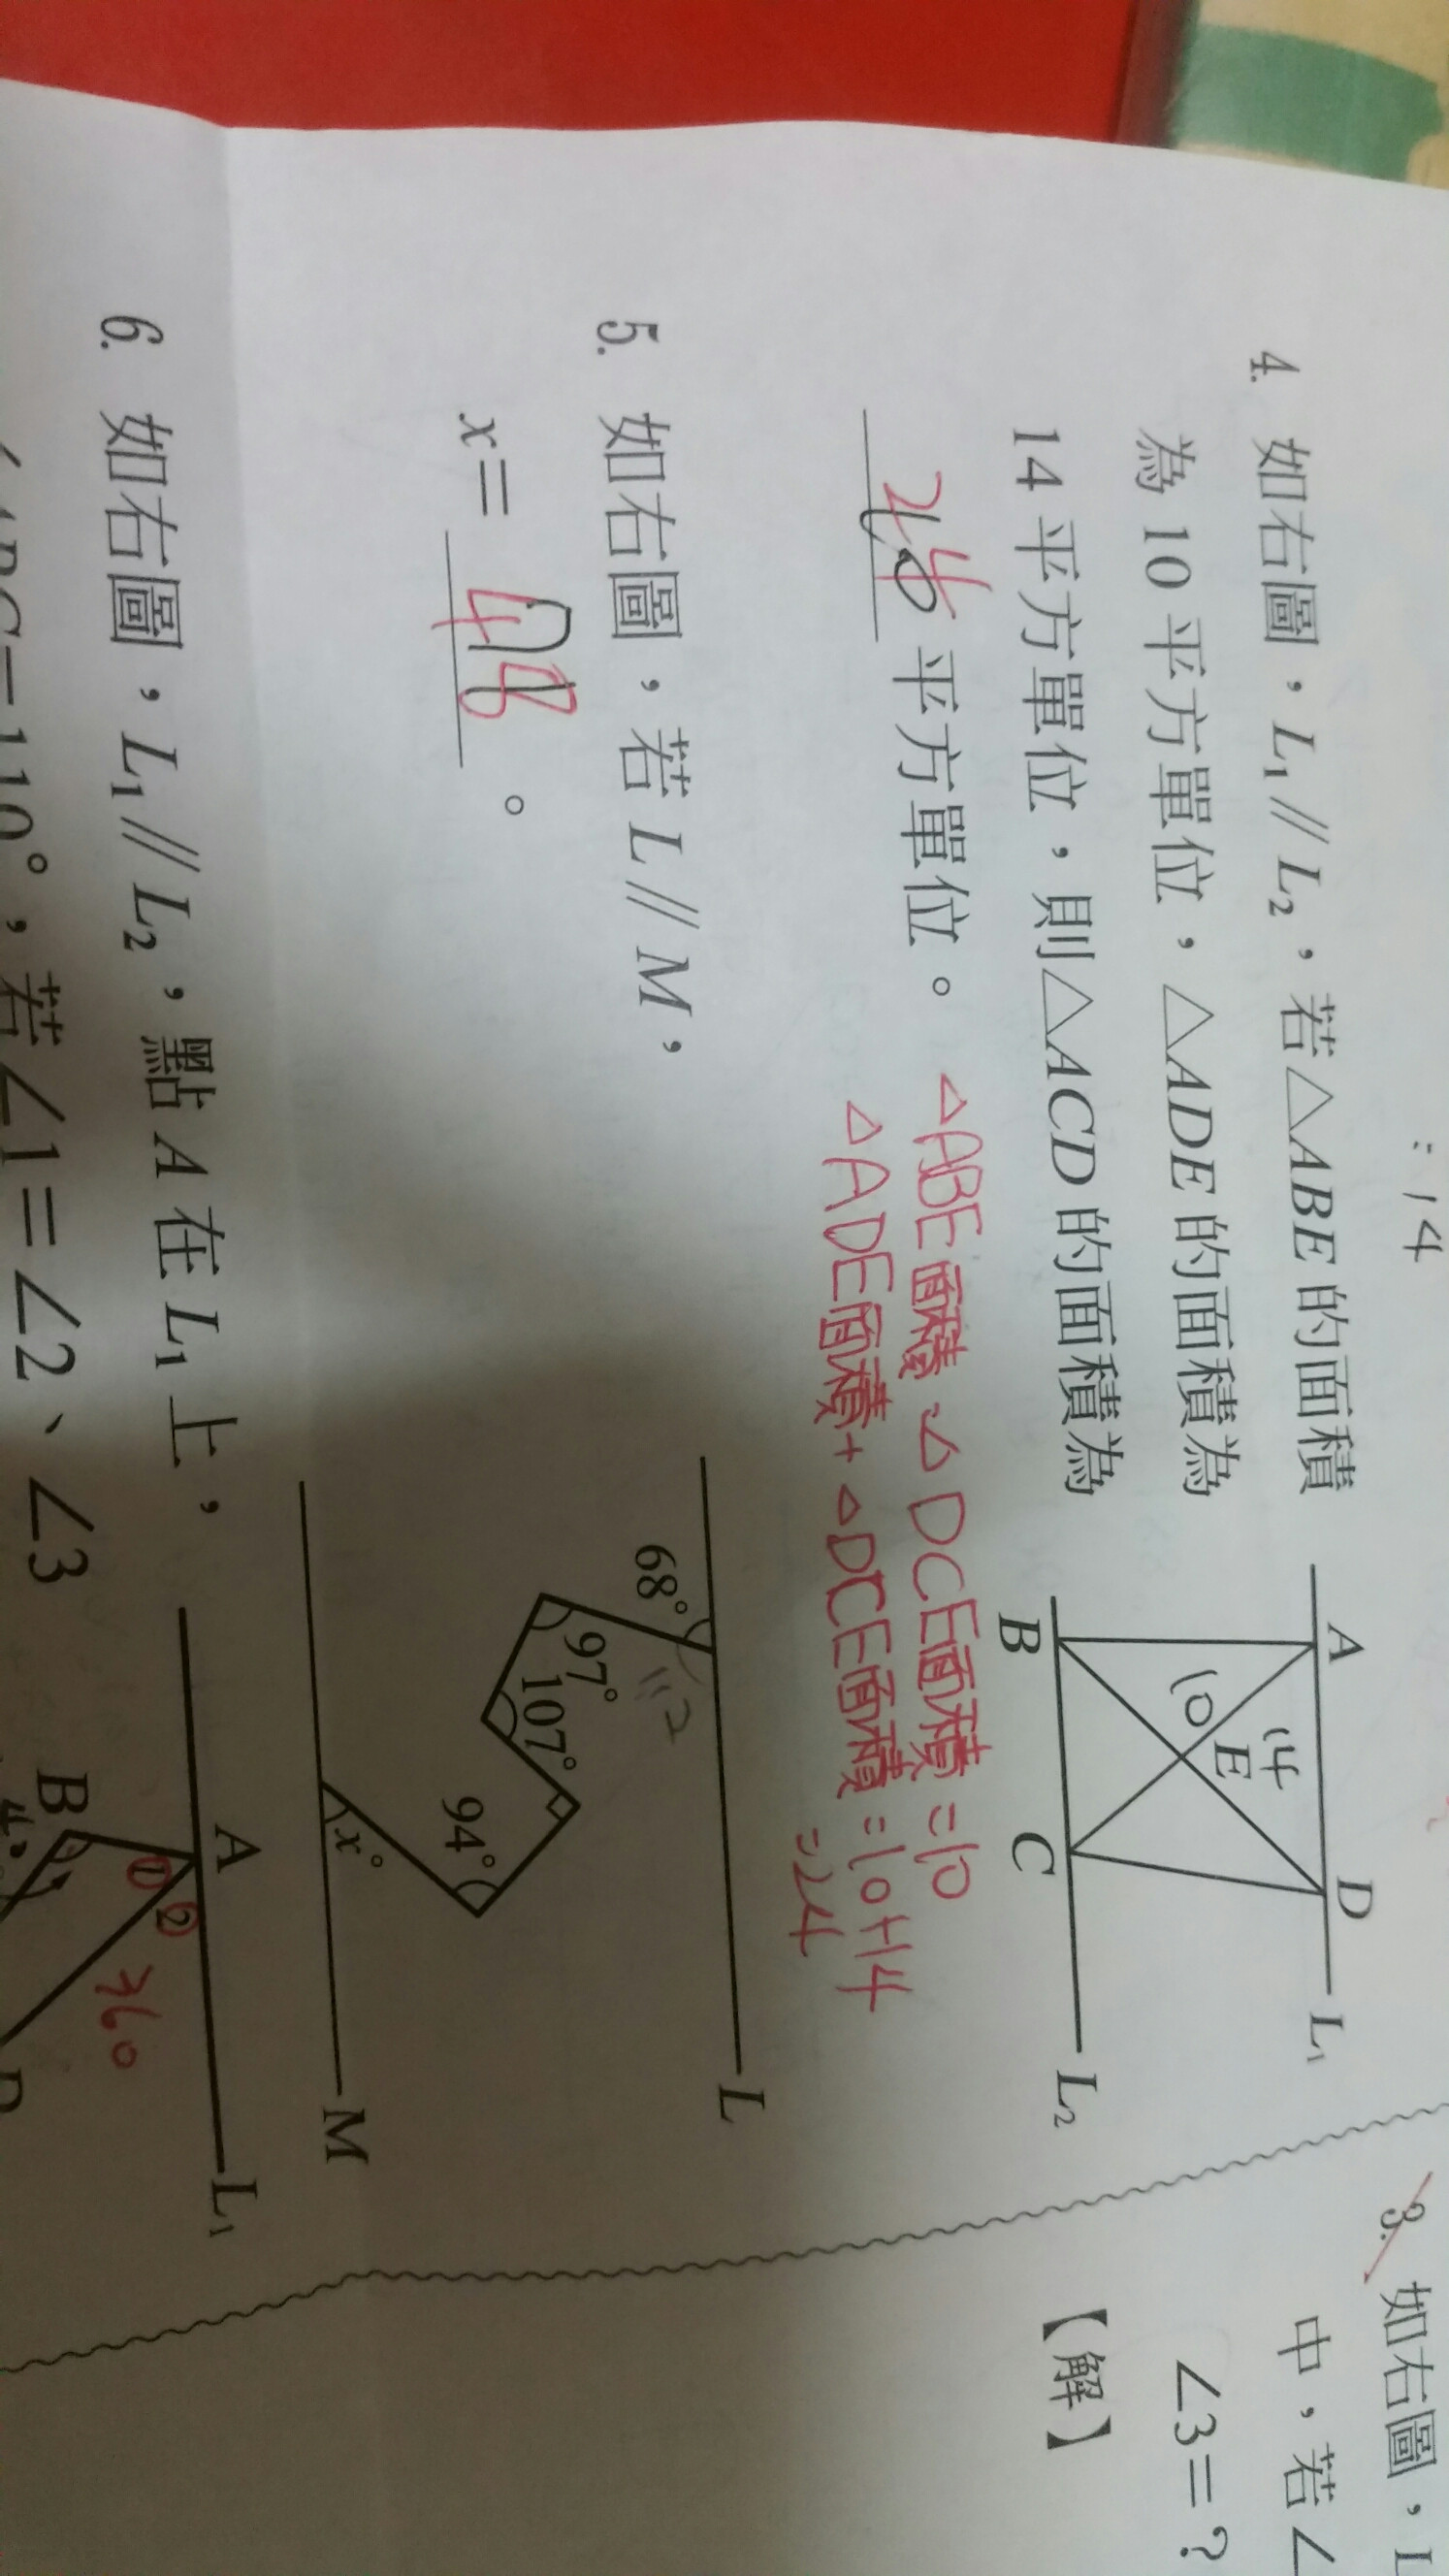 : 14
4. 如右圖，L₁∥L₂，若△ABE的面積
為10平方單位，△ADE的面積為
14平方單位，則△ACD的面積為
24 平方單位。
△ABE面積=△DCE面積=10
△ADE面積+△DCE面積=10+14
=24
A
D
L₁
14
10
E
B
C
L₂
5. 如右圖，若L∥M，
x= 48 。
L
68°
112
97°
107°
94°
x°
M
6. 如右圖，L₁∥L₂，點A在L₁上，
∠1=∠2、∠3
A
L₁
1
2
B
360
3. 如右圖，L
中，若∠
∠3=?
【解】